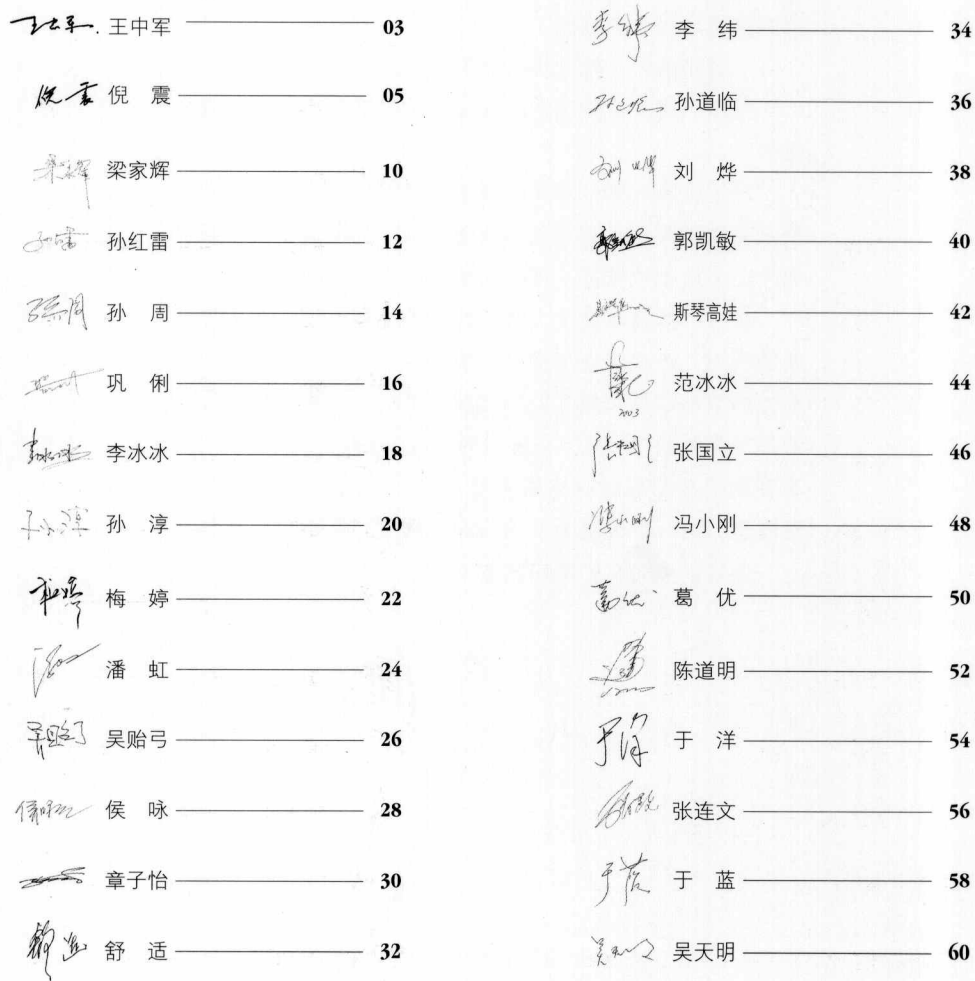 王中军 03
倪 震 05
梁家辉 10
孙红雷 12
孙 周 14
巩 俐 16
李冰冰 18
孙 淳 20
梅 婷 22
潘 虹 24
吴贻弓 26
侯 咏 28
章子怡 30
舒 适 32
李 纬 34
孙道临 36
刘 烨 38
郭凯敏 40
斯琴高娃 42
范冰冰 44
2003
张国立 46
冯小刚 48
葛 优 50
陈道明 52
于 洋 54
张连文 56
于 蓝 58
吴天明 60